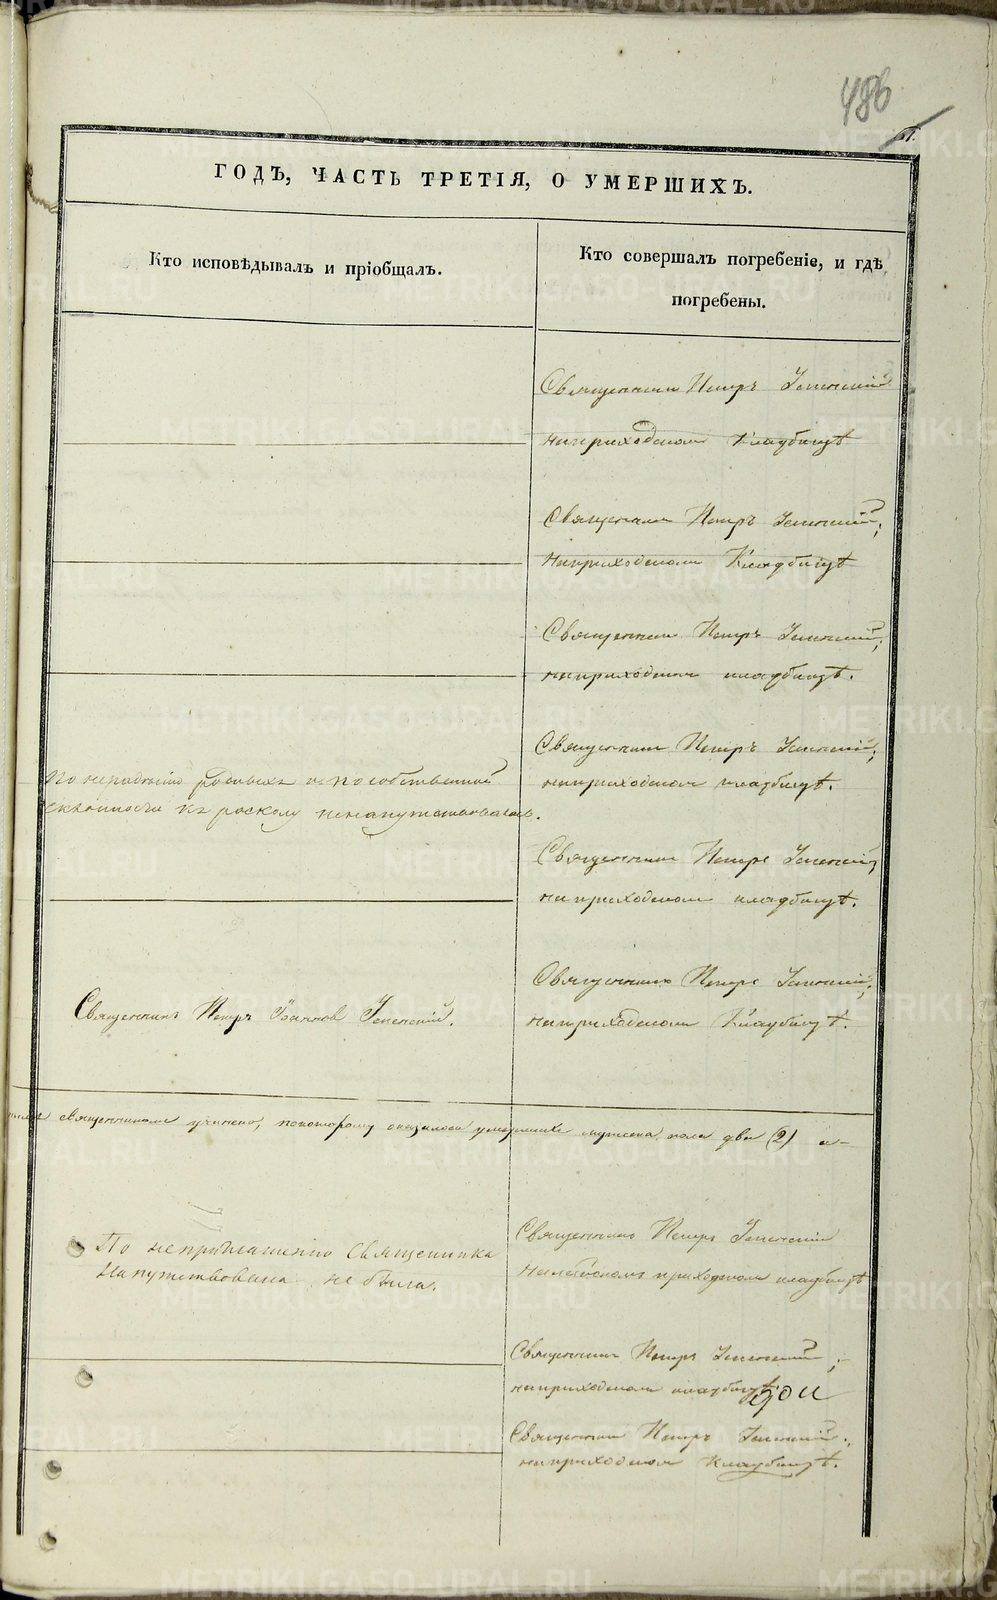 486
ГОДЪ, ЧАСТЬ ТРЕТІЯ, О УМЕРШИХЪ.
Кто исповѣдывалъ и пріобщалъ.
Кто совершалъ погребеніе, и гдѣ
погребены.
Священникъ Петръ Успенскій
на приходскомъ кладбищѣ
Священникъ Петръ Успенскій;
на приходскомъ кладбищѣ
Священникъ Петръ Успенскій;
на приходскомъ кладбищѣ.
По нерадѣнію родныхъ и по собственной
склонности къ расколу ненапутствовалась.
Священникъ Петръ Успенскій;
на приходскомъ кладбищѣ.
Священникъ Петръ Успенскій;
на приходскомъ кладбищѣ.
Священникъ Петръ Іоанновъ Успенскій.
Священникъ Петръ Успенскій;
на приходскомъ кладбищѣ.
священникомъ учинено, по которому оказалось умершихъ мужска пола два (2) а-
По неприглашенію Священника
Напутствована не была.
Священникъ Петръ Успенскій
на приходскомъ кладбищѣ
Священникъ Петръ Успенскій;
на приходскомъ кладбищѣ
Священникъ Петръ Успенскій;
на приходскомъ кладбищѣ.
METRIKI.GASO-URAL.RU